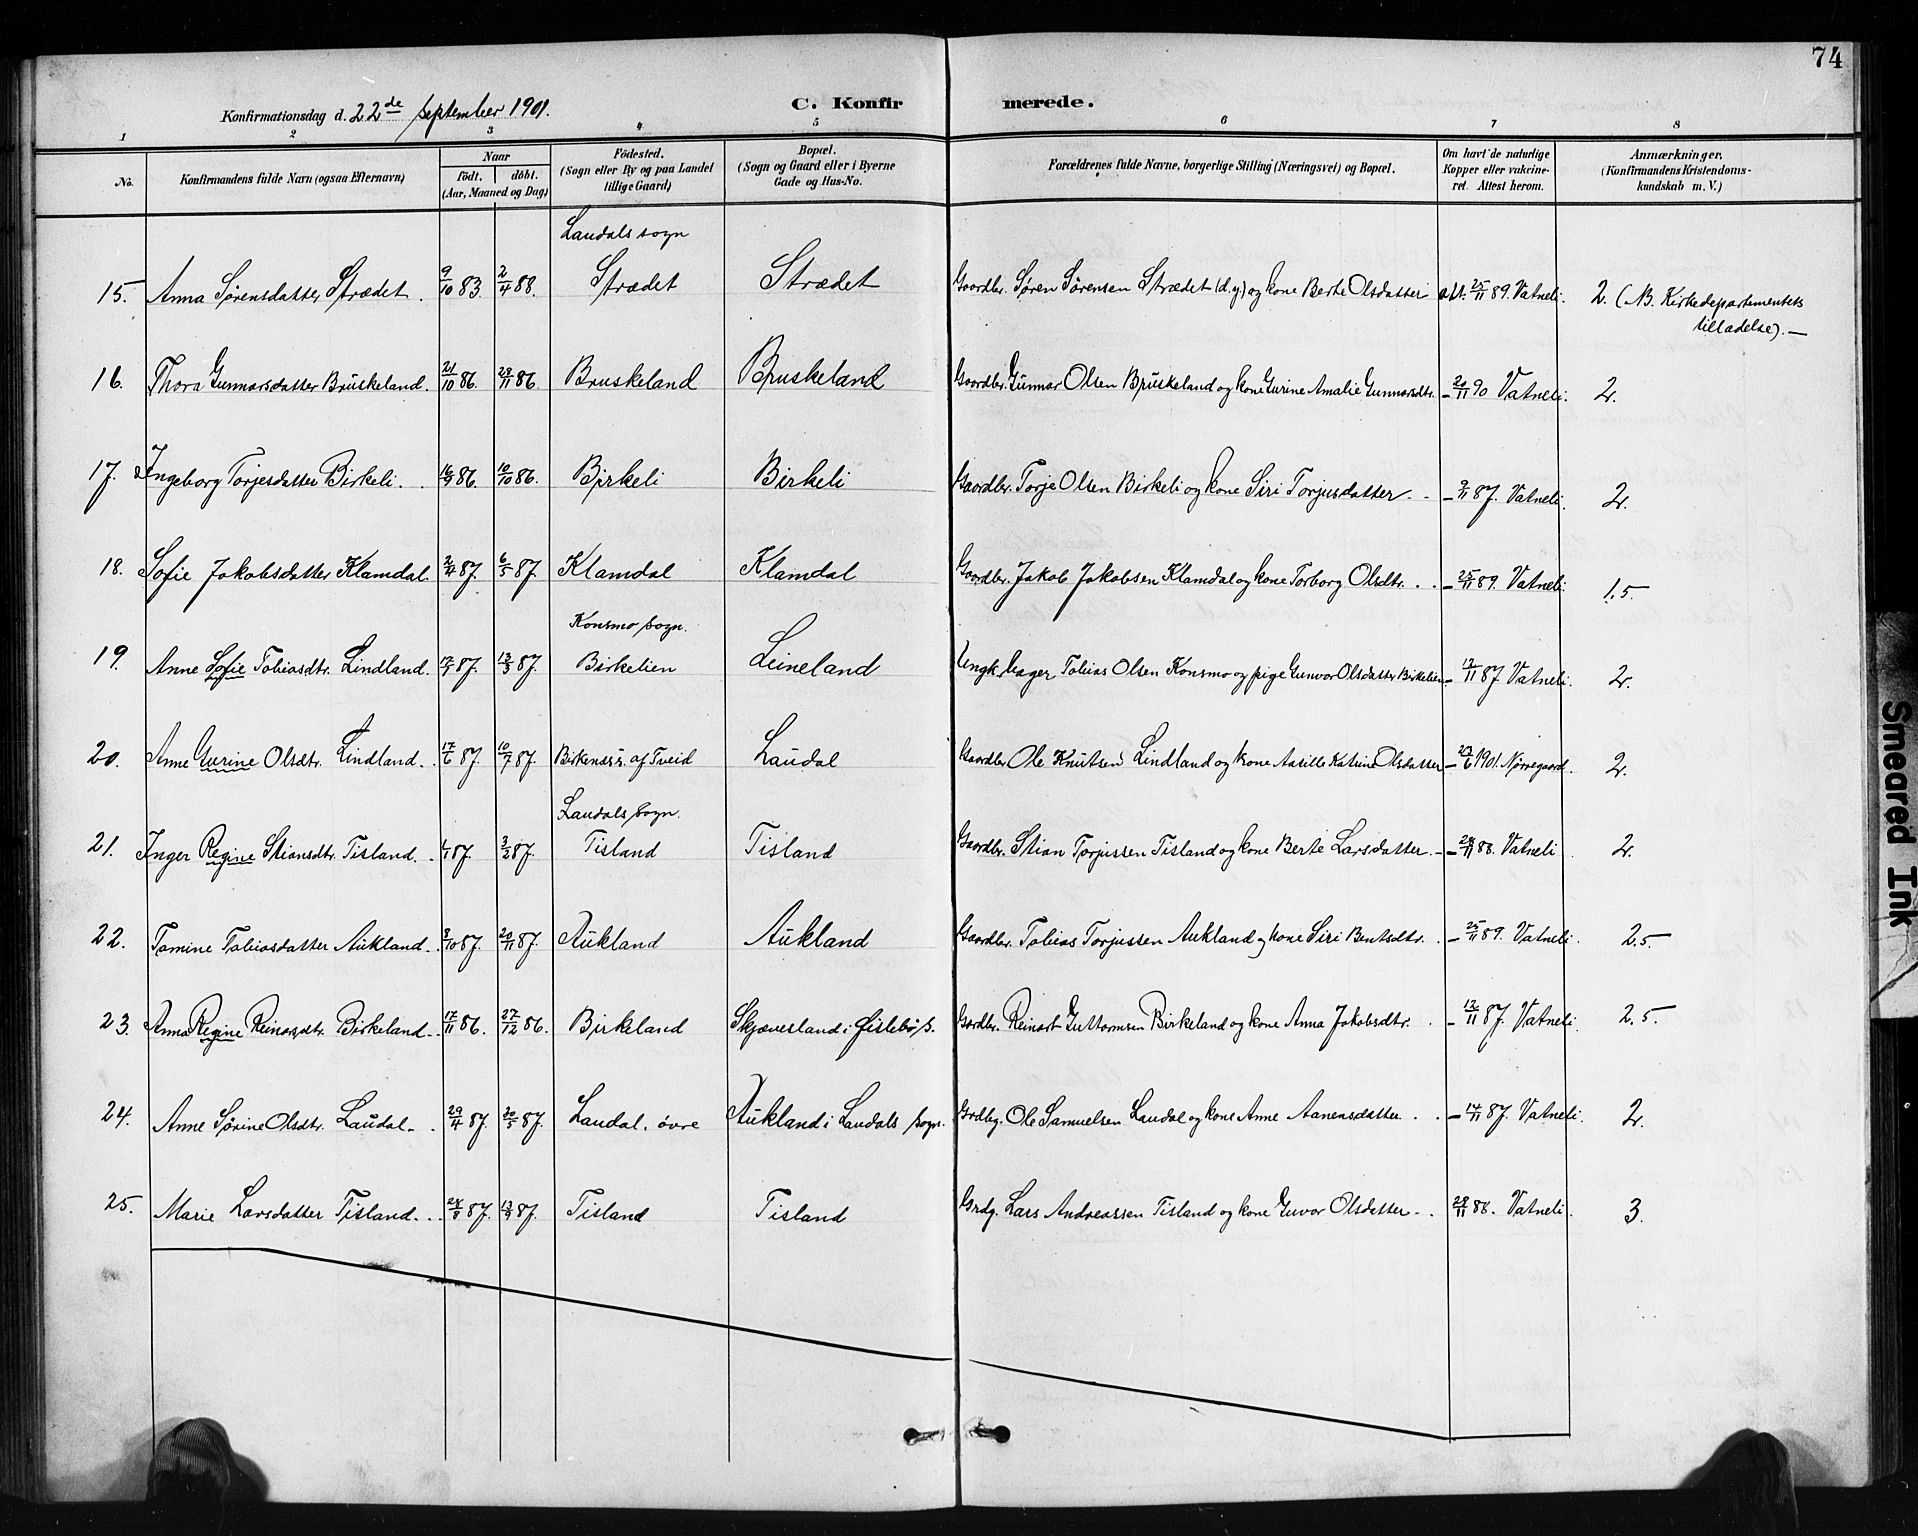 74
Konfirmationsdag d. 22de September 1901.
C. Konfirmerede.
1 2 3 4 5 6 7 8
No.
Konfirmandens fulde Navn (ogsaa Efternavn)
Naar
født. døbt.
(Aar, Maaned og Dag)
Fødested.
(Sogn eller By og paa Landet
tillige Gaard)
Bopæl.
(Sogn og Gaard eller i Byerne
Gade og Hus-No.
Forældrenes fulde Navne, borgerlige Stilling (Næringsvei) og Bopæl.
Om havt de naturlige
Kopper eller vakcine-
ret. Attest herom.
Anmærkninger.
(Konfirmandens Kristendoms-
kundskab m. V.)
Laudals sogn
15. Anna Sørensdatter Strædet. 9/10 83. 2/4 88. Strædet Strædet Gaardbr. Søren Sørensen Strædet (d.y) og kone Berte Olsdatter att. 25/11 89. Vatneli. 2. (NB. Kirkedepartementets
tilladelse). —
16. Thora Gunnarsdatter Bruskeland. 21/10 86. 28/11 86. Bruskeland Bruskeland Gaardbr. Gunnar Olsen Bruskeland og kone Gurine Amalie Gunnarsdtr. - 20/11 90 Vatneli. 2.
17. Ingeborg Torjesdatter Birkeli. 16/9 86. 10/10 86. Birkeli Birkeli Gaardbr. Torje Olsen Birkeli og kone Siri Torjusdatter - 9/11 87. Vatneli. 2.
18. Sofie Jakobsdatter Klamdal. 2/4 87. 6/5 87. Klamdal Klamdal Gaardbr. Jakob Jakobsen Klamdal og kone Torborg Olsdtr. - 25/11 89. Vatneli. 1.5
Konsmo sogn.
19. Anne Sofie Tobiasdtr. Lindland. 87. 13/3 87. Birkelien Leineland Ungk. Tobias Olsen Konsmo og pige Gunvor Olsdatter Birkelien - 12/11 87. Vatneli. 2.
20. Anne Gurine Olsdtr. Lindland. 17/6 87. 10/7 87. Birkenæs s. af Tveid Laudal Gaardbr. Ole Knutsen Lindland og kone Aasille Katrine Olsdatter - 27/6 1901. Nørregaard. 2.
Laudals sogn.
21. Inger Regine Stiansdtr. Tisland. 87. 3/2 87. Tisland Tisland Gaardbr. Stian Torjussen Tisland og kone Berte Larsdatter - 28/11 88. Vatneli 2.
22. Tomine Tobiasdatter Aukland. 8/10 87. 20/11 87. Aukland Aukland Gaardbr. Tobias Torjussen Aukland og kone Siri Bentsdtr. - 25/11 89. Vatneli. 2.5
23. Anna Regine Reinarsdtr. Birkeland. 17/11 86. 27/12 86. Birkeland Skjævesland i Øislebø s. Gardbr. Reinart Guttormsen Birkeland og kone Anna Jakobsdtr. - 12/11 87. Vatneli. 2.5.
24. Anne Sørine Olsdtr. Laudal. 29/4 87. 30/5 87. Laudal, øvre Aukland i Laudals sogn. Grdbg. Ole Samuelsen Laudal og kone Anne Aanensdatter - 14/11 87. Vatneli. 2.
25. Marie Larsdatter Tisland. 24/8 87. 13/9 87. Tisland Tisland Grdg. Lars Andreassen Tisland og kone Guvor Olsdatter - 28/11 88. Vatneli. 3.
Smeared Ink